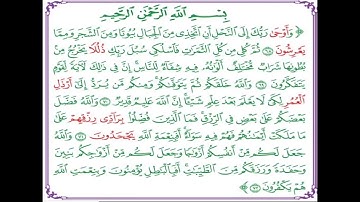 بِسْمِ اللَّهِ الرَّحْمَٰنِ الرَّحِيمِ
﴿ وَأَوْحَىٰ رَبُّكَ إِلَى النَّحْلِ أَنِ اتَّخِذِي مِنَ الْجِبَالِ بُيُوتًا وَمِنَ الشَّجَرِ وَمِمَّا
يَعْرِشُونَ ۝٦٨ ثُمَّ كُلِي مِن كُلِّ الثَّمَرَاتِ فَاسْلُكِي سُبُلَ رَبِّكِ ذُلُلًا يَخْرُجُ مِن
بُطُونِهَا شَرَابٌ مُّخْتَلِفٌ أَلْوَانُهُ فِيهِ شِفَاءٌ لِّلنَّاسِ إِنَّ فِي ذَٰلِكَ لَآيَةً لِّقَوْمٍ
يَتَفَكَّرُونَ ۝٦٩ وَاللَّهُ خَلَقَكُمْ ثُمَّ يَتَوَفَّاكُمْ وَمِنكُم مَّن يُرَدُّ إِلَىٰ أَرْذَلِ
الْعُمُرِ لِكَيْ لَا يَعْلَمَ بَعْدَ عِلْمٍ شَيْئًا إِنَّ اللَّهَ عَلِيمٌ قَدِيرٌ ۝٧٠ وَاللَّهُ فَضَّلَ
بَعْضَكُمْ عَلَىٰ بَعْضٍ فِي الرِّزْقِ فَمَا الَّذِينَ فُضِّلُوا بِرَادِّي رِزْقِهِمْ عَلَىٰ
مَا مَلَكَتْ أَيْمَانُهُمْ فَهُمْ فِيهِ سَوَاءٌ أَفَبِنِعْمَةِ اللَّهِ يَجْحَدُونَ ۝٧١ وَاللَّهُ
جَعَلَ لَكُم مِّنْ أَنفُسِكُمْ أَزْوَاجًا وَجَعَلَ لَكُم مِّنْ أَزْوَاجِكُم بَنِينَ
وَحَفَدَةً وَرَزَقَكُم مِّنَ الطَّيِّبَاتِ أَفَبِالْبَاطِلِ يُؤْمِنُونَ وَبِنِعْمَتِ اللَّهِ
هُمْ يَكْفُرُونَ ۝٧٢ ﴾